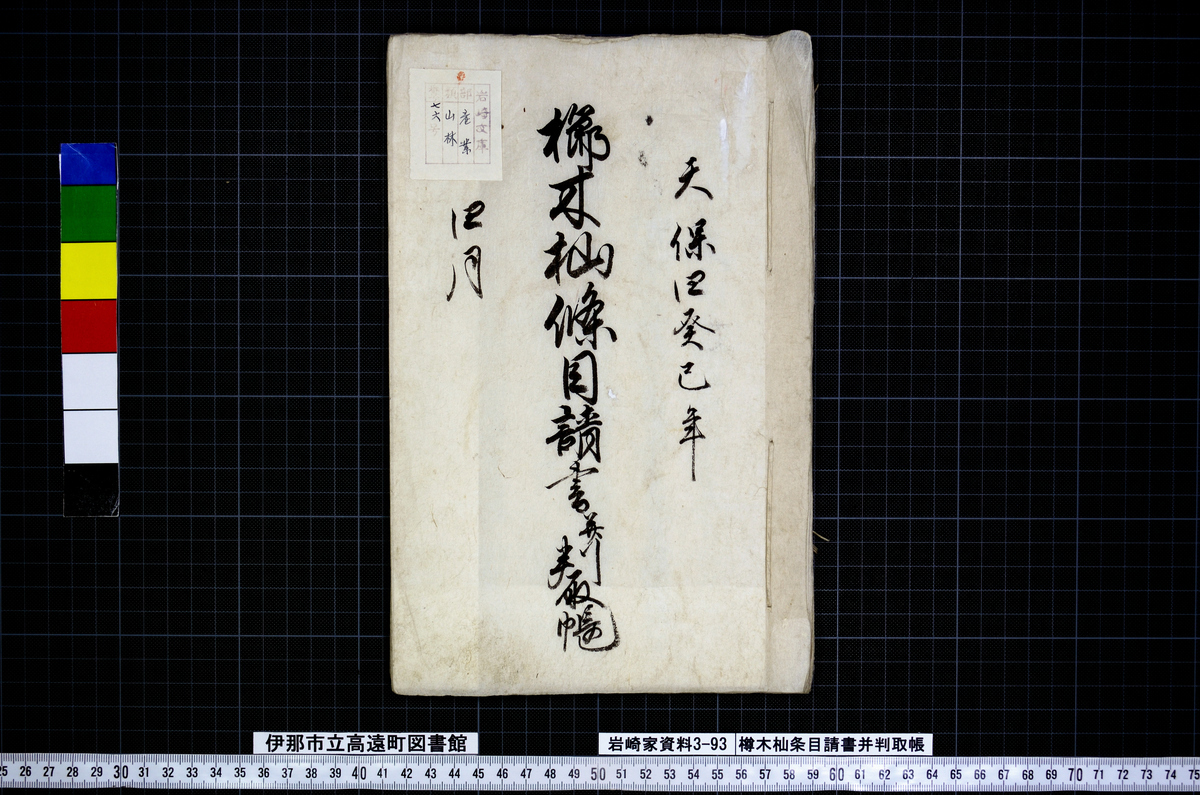 天保四癸巳年
榑木杣條目請書并判取帳
四月
岩崎文庫
部 産業
山林
七六
伊那市立高遠町図書館
岩崎家資料3-93
樽木杣条目請書并判取帳
25 26 27 28 29 30 31 32 33 34 35 36 37 38 39 40 41 42 43 44 45 46 47 48 49 50 51 52 53 54 55 56 57 58 59 60 61 62 63 64 65 66 67 68 69 70 71 72 73 74 75